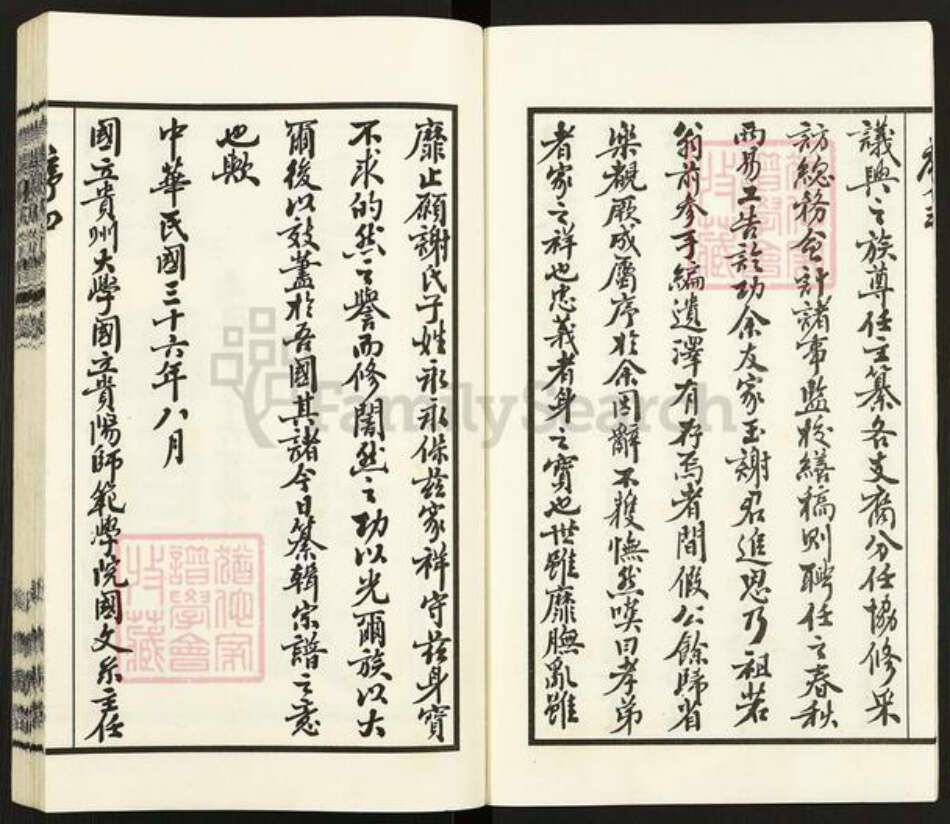 議與之族尊任主纂各支裔分任協修采
訪總務會計諸事監修繕稿則聘任之春秋
兩易工告訖功余友家玉謝君進恩乃祖若
翁前參手編遺澤有存焉者間假公餘歸省
樂觀厥成屬序於余固辭不獲憮然嘆曰孝弟
者家之祥也忠義者身之寶也世雖靡膴亂雖
靡止願謝氏子姓永永保茲家祥守茲身寶
不求的然之譽而修闇然之功以光爾族以大
爾後以效藎於吾國其諸今日纂輯宗譜之意
也歟
中華民國三十六年八月
國立貴州大學國立貴陽師範學院國文系主任
FamilySearch
譜學會
收藏
譜學會
收藏